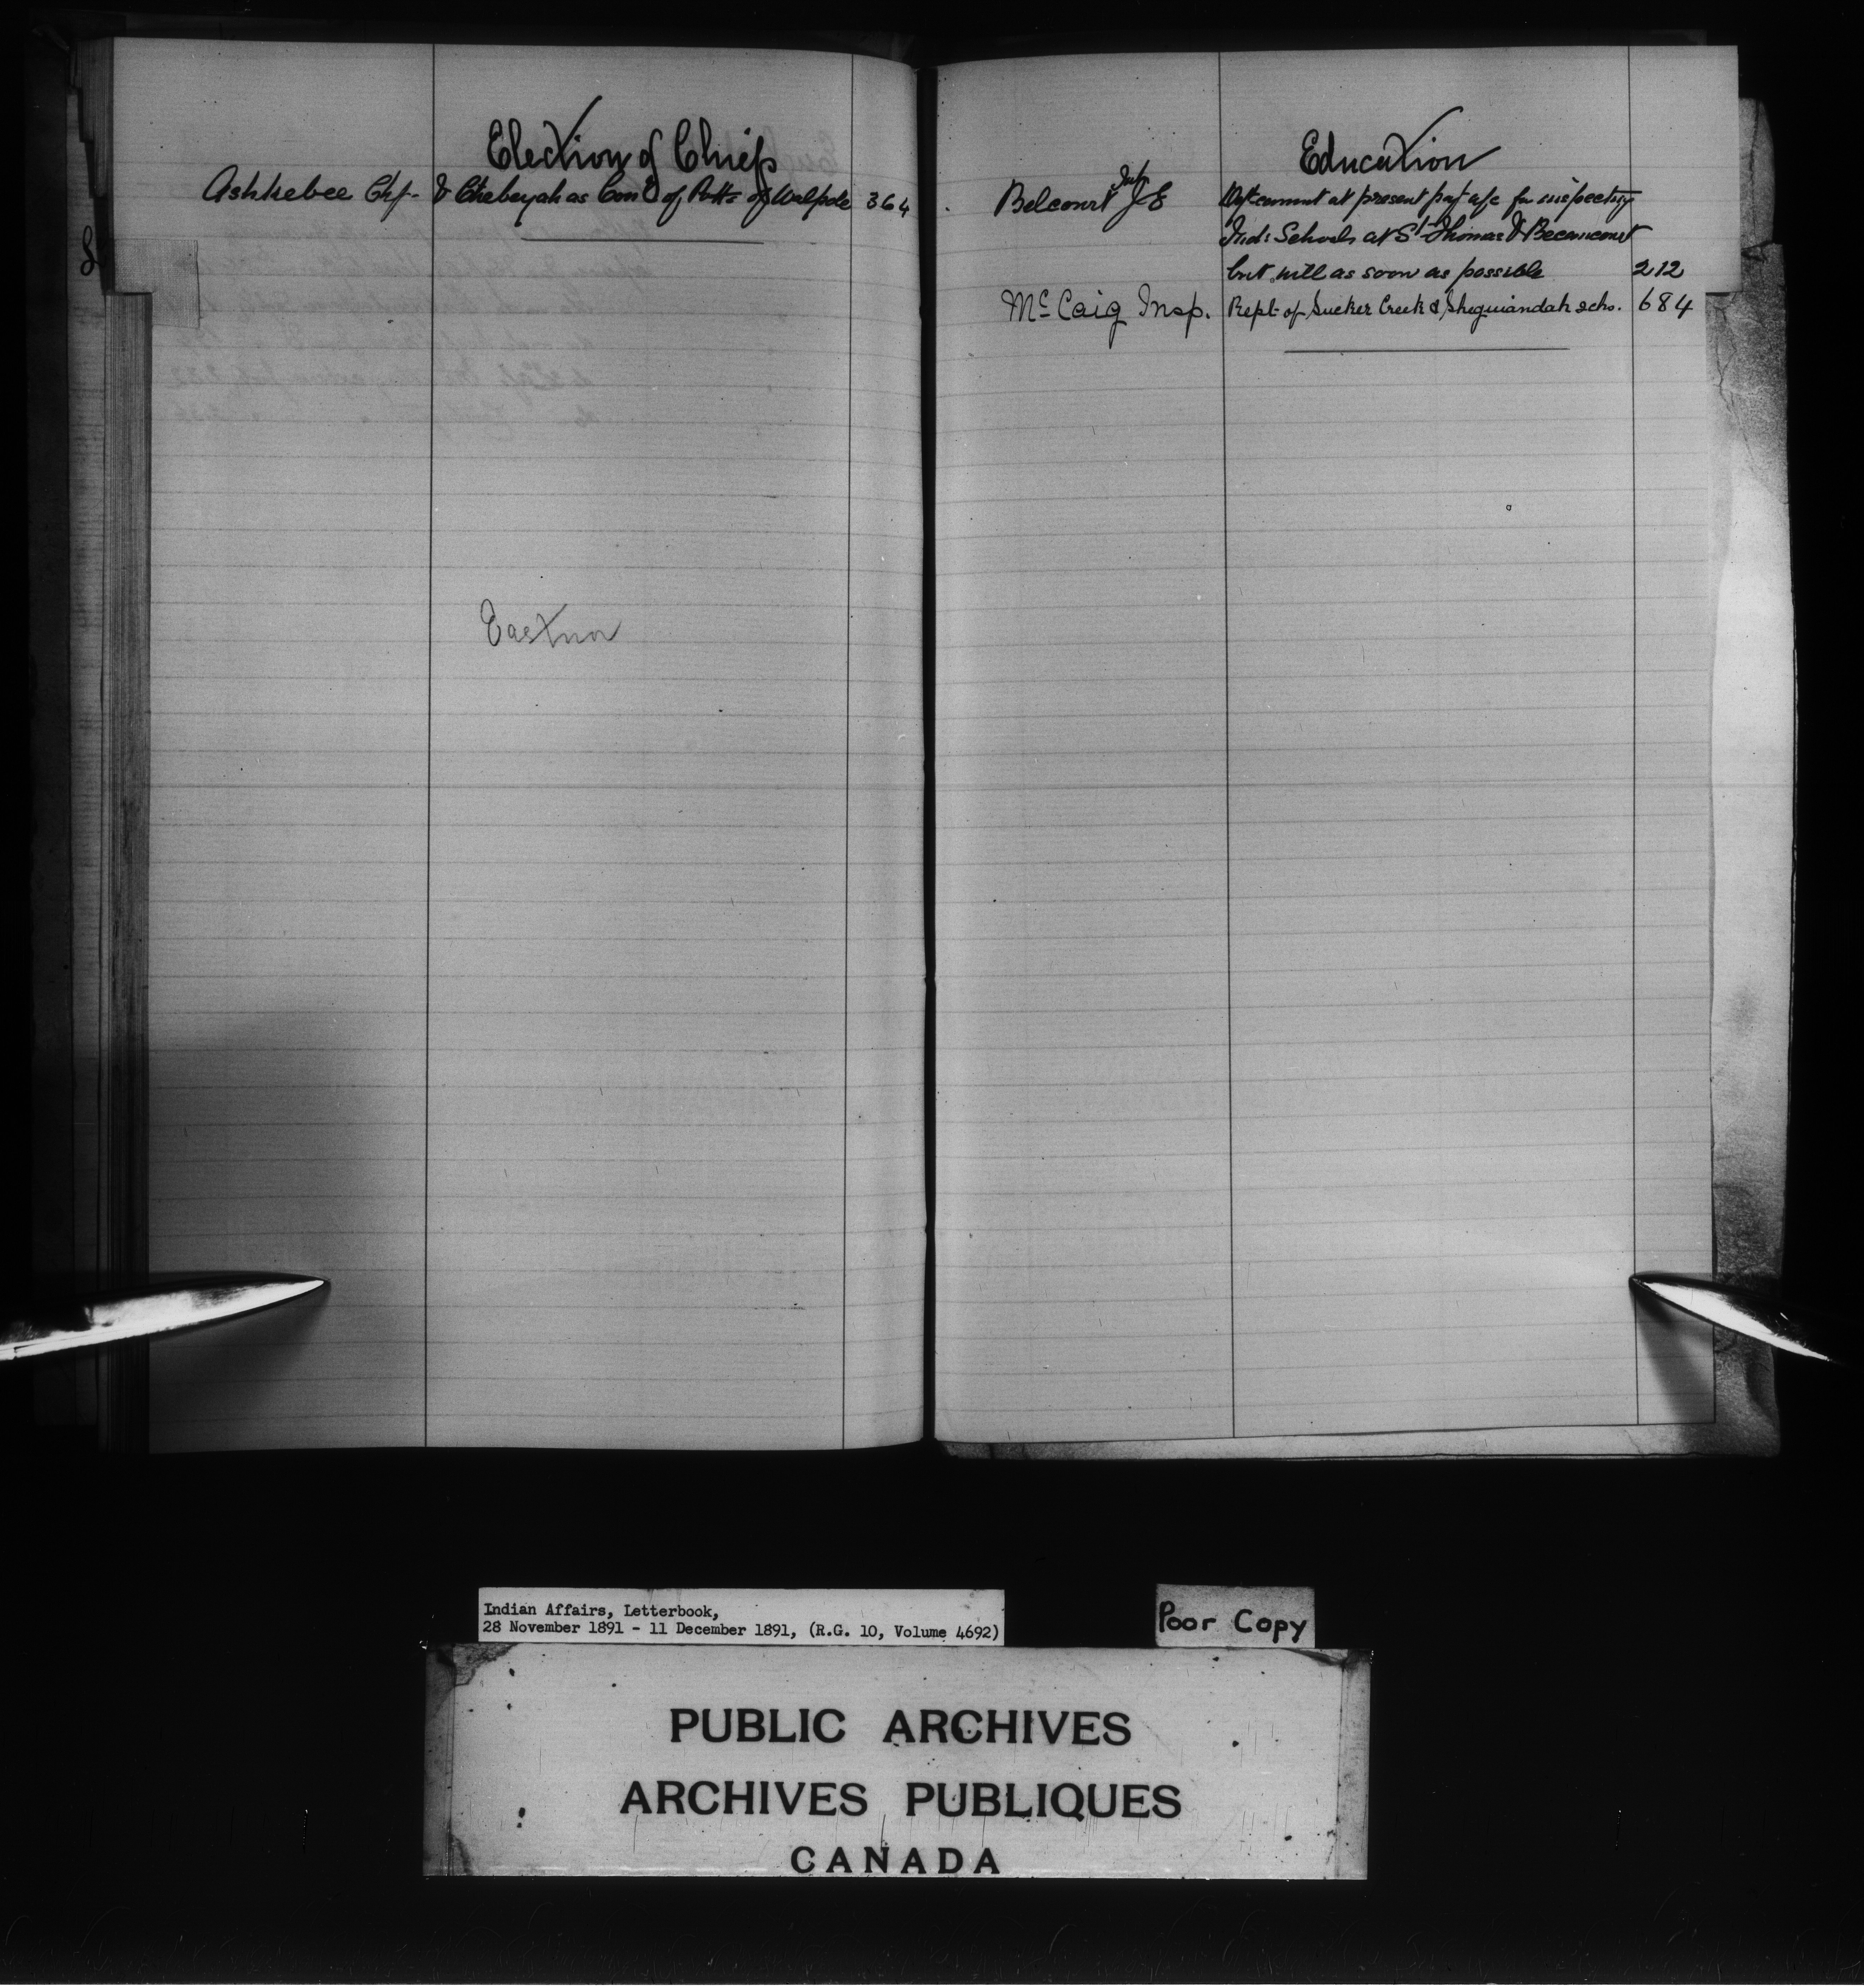 Election of Chiefs
Ashkebee Chf- & Chebeyah as Con'd of Potts of Walpole 364
Eastnor
Education
Belcourt J E Insp Dept cannot at present pay a/c for inspecting
Ind: Schools at St Thomas & Becancourt
but will as soon as possible 212
McCaig Insp. Rept of Sucker Creek & Sheguiandah schs. 684
Indian Affairs, Letterbook,
28 November 1891 - 11 December 1891, (R.G. 10, Volume 4692)
Poor Copy
PUBLIC ARCHIVES
ARCHIVES PUBLIQUES
CANADA